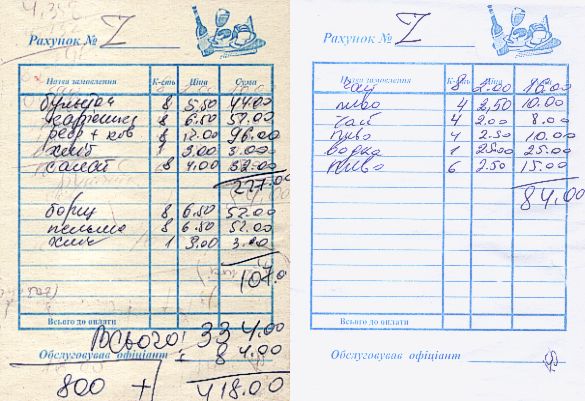 Рахунок № Z
Назва замовлення К-сть Ціна Сума
бульйон 8 5.50 44.00
8 6.50 52.00
8 12.00 96.00
хліб 1 3.00 3.00
салат 8 4.00 32.00
227.00
борщ 8 6.50 52.00
пельмені 8 6.50 52.00
хліб 1 3.00 3.00
107.0
Всього до оплати
Всього: 334.00
Обслуговував офіціант
84.00
800 418.00
Рахунок № Z
Назва замовлення К-сть Ціна Сума
чай 8 2.00 16.00
пиво 4 2,50 10.00
чай 4 2.00 8.00
пиво 4 2.50 10.00
водка 1 25.00 25.00
пиво 6 2.50 15.00
84.00
Всього до оплати
Обслуговував офіціант